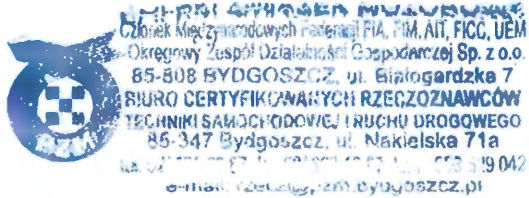 Członek Międzynarodowych Federacji FIA, FIM, AIT, FICC, UEM
Okręgowy Zespół Działalności Gospodarczej Sp. z o.o.
85-808 BYDGOSZCZ, ul. Białogardzka 7
BIURO CERTYFIKOWANYCH RZECZOZNAWCÓW
TECHNIKI SAMOCHODOWEJ I RUCHU DROGOWEGO
85-347 Bydgoszcz, ul. Nakielska 71a
042